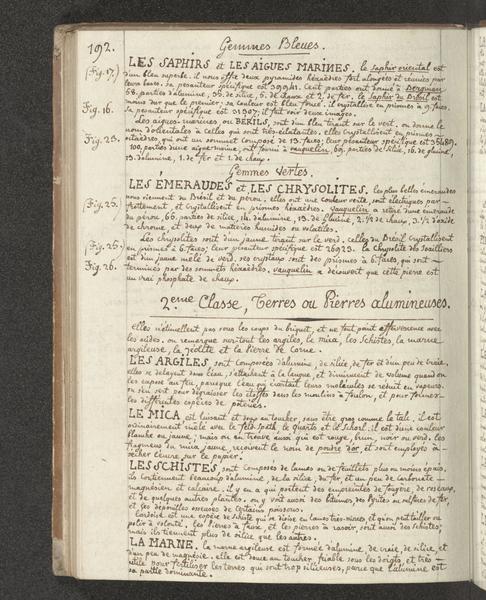 192.
Gemmes Bleues.
(Fig. 17.)
LES SAPHIRS et LES AIGUES MARINES. le saphir oriental est
d'un bleu superbe. il nous offre deux pyramides hexaèdres fort alongées et réunies par
leurs bases. sa pesanteur spécifique est 39941. Cent parties ont donné à Bergman
58. parties d'alumine, 35. de silice, 5. de chaux et 2. de fer. le saphir du Brésil est
Fig. 16.
moins dur que le premier; sa couleur est bleu foncé. il crystallise en prismes à 9. faces.
sa pesanteur spécifique est 31307; il fait voir deux images.
Les aigues-marines, ou BERILS, sont d'un bleu tirant sur le vert. on donne le
nom d'orientales à celles qui sont très-éclatantes. elles crystallisent en prismes
Fig. 23.
octaèdres, qui ont un sommet composé de 13. faces; leur pesanteur spécifique est 35489.
100. parties d'une aiguemarine, ont fourni à vauquelin, 69. parties de silice, 16. de glucine,
13. d'alumine, 1. de fer et 1. de chaux.
Gemmes Vertes.
LES ÉMERAUDES et LES CHRYSOLITES. les plus belles émeraudes
nous viennent du Brésil et du pérou. elles ont une couleur verte, sont électriques par
Fig. 25.
frottement, et crystallisent en prismes hexaèdres. vauquelin a retiré d'une émeraude
du pérou, 66. parties de silice, 14. d'alumine, 13. de glucine, 2. 1/2 de chaux, 3. 1/2 d'oxide
de chrome, et deux de matières humides ou volatiles.
Les chrysolites sont d'un jaune tirant sur le verd. celles du Brésil crystallisent
Fig. 25.
en prismes à 6. faces; leur pesanteur spécifique est 26923. la chrysolite des joailliers
est d'un jaune mêlé de verd. ses crystaux sont des prismes à 6. faces, qui sont
Fig. 26.
terminées par des sommets hexaèdres. vauquelin a découvert que cette pierre est
un vrai phosphate de chaux.
2.eme Classe, Terres ou Pierres alumineuses.
elles n'étincellent pas sous les coups du briquet, et ne font point effervescence avec
les acides. on remarque surtout les argiles, le mica, les schistes, la marne
argileuse, la zéolite et la Pierre de Corne.
LES ARGILES, sont composées d'alumine, de silice, de fer et d'un peu de craie.
elles se delayent dans l'eau, s'attachent à la langue, et diminuent de volume quand on
les expose au feu, parceque l'eau qui écartait leurs molécules se réduit en vapeurs.
on s'en sert pour dégraisser les étoffes dans les moulins à foulon, et pour former
les différentes espèces de poteries.
LE MICA est luisant et doux au toucher, sans être gras comme le talc. il est
ordinairement mêlé avec le feld-spath, le quartz et le Schorl. il est d'une couleur
blanche ou jaune; mais on en trouve aussi qui est rouge, brun, noir ou verd. les
fragmens du mica jaune, reçoivent le nom de poudre d'or, et sont employés à
sécher l'encre sur le papier.
LES SCHISTES, sont composés de lames ou de feuillets plus ou moins épais.
ils contiennent beaucoup d'alumine, de la silice, du fer et un peu de carbonate
magnésien et calcaire. il y en a qui portent des empreintes de fougère, de roseaux,
et de quelques autres plantes. on y voit aussi des bitumes, des Pyrites ou sulfures de fer,
et les dépouilles osseuses de certains poissons.
L'ardoise est une espèce de schiste qui se divise en lames très-minces et qu'on peut tailler ou
polir à volonté. les Pierres à faux, et les pierres à rasoir, sont aussi des schistes,
mais ils tiennent plus de silice que les autres.
LA MARNE. la marne argileuse est formée d'alumine, de craie, de silice, et
d'un peu de magnésie. elle est douce au toucher, friable sous les doigts, et très
utile pour fertiliser les terres qui sont trop siliceuses, parce que l'alumine est
sa partie dominante.